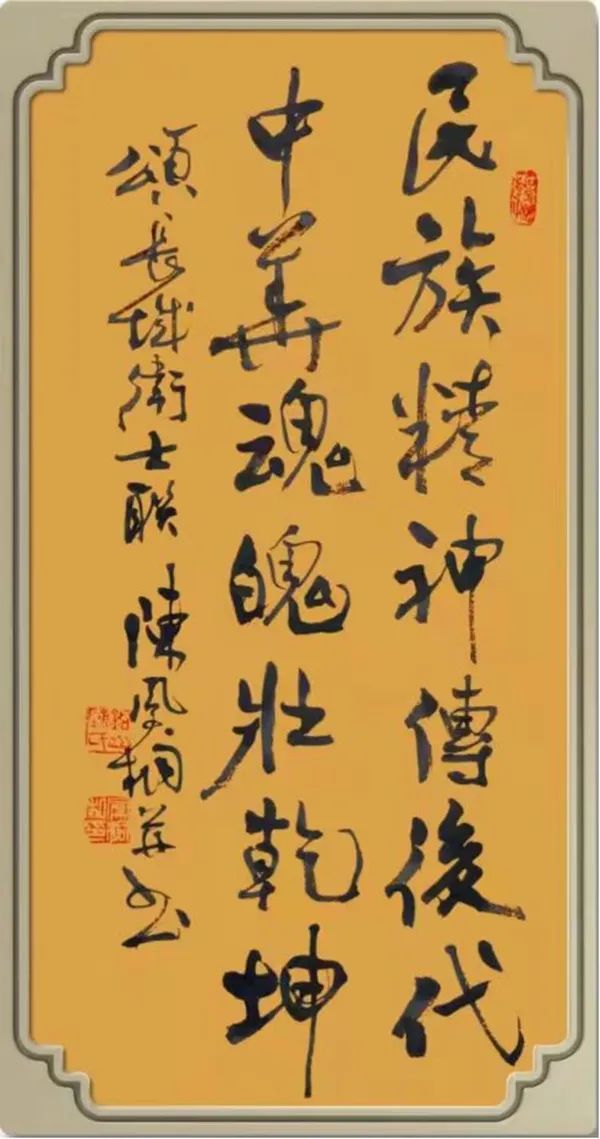 民族精神傳後代
中華魂魄壯乾坤
頌長城衛士聯 陳鳳桐并书